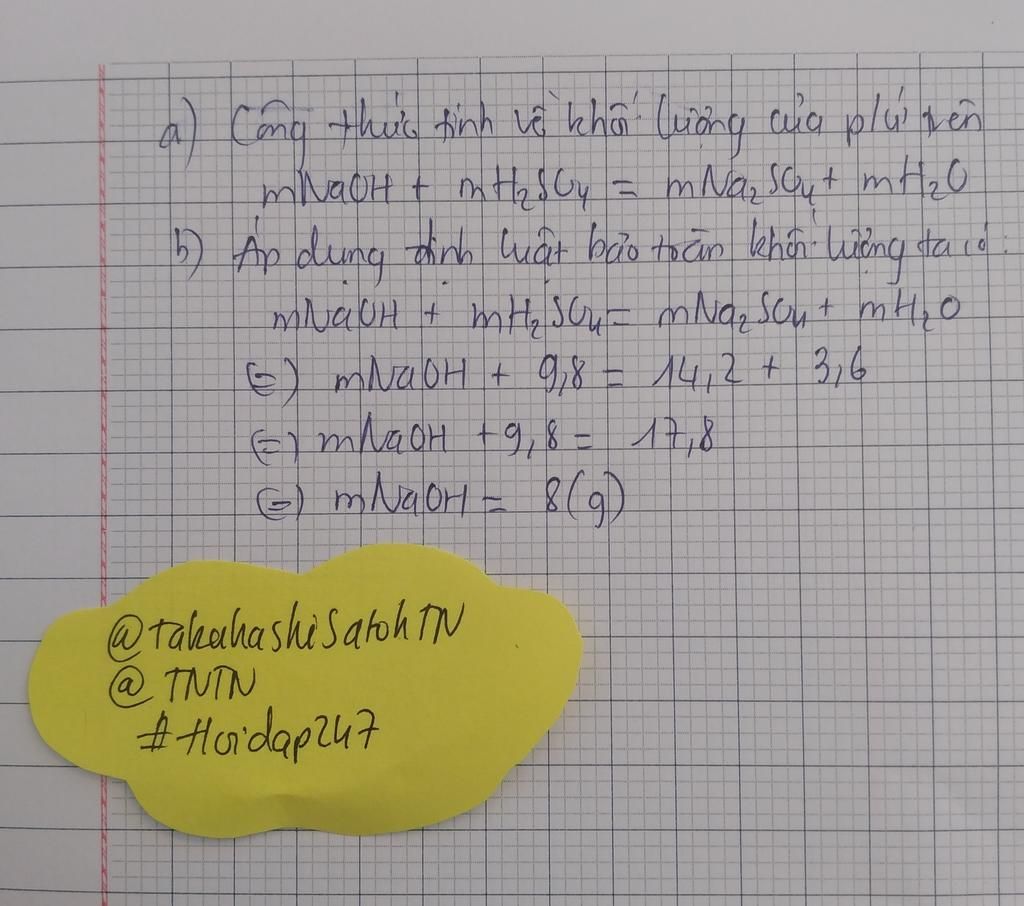 a) Công thức tính về khối lượng của p/ứ trên
mNaOH + mH₂SO₄ = mNa₂SO₄ + mH₂O
b) Áp dụng định luật bảo toàn khối lượng ta có:
mNaOH + mH₂SO₄ = mNa₂SO₄ + mH₂O
(=) mNaOH + 9,8 = 14,2 + 3,6
(=) mNaOH + 9,8 = 17,8
(=) mNaOH = 8(g)
@takahashiSatohTN
@TNTN
#Hoidap247